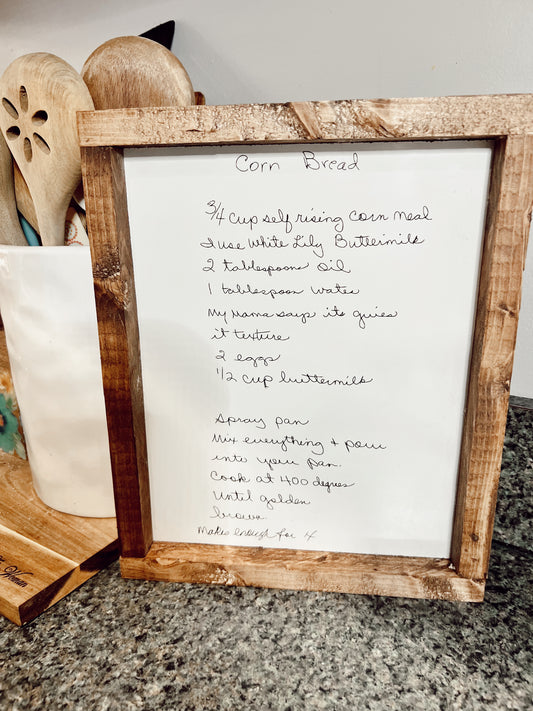 Corn Bread
3/4 cup self rising corn meal
I use White Lily Buttermilk
2 tablespoons oil
1 tablespoon water
My Mama says its gives
it texture
2 eggs
1/2 cup buttermilk
Spray pan
Mix everything + pour
into your pan.
Cook at 400 degrees
Until golden
brown
Makes enough for 4